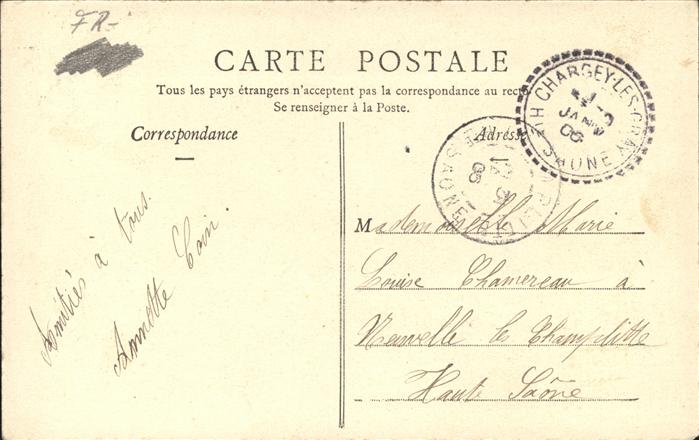 FR-
CARTE POSTALE
Tous les pays étrangers n'acceptent pas la correspondance au recto
Se renseigner à la Poste.
Correspondance
Adresse
CHARGEY-LES-GRAY
JANV
06
Hte SAONE
SAONE
Mademoiselle Marie
Louise Chamereau à
Neuvelle les Champlitte
Haute Saône
Amitiés à tous.
Annette